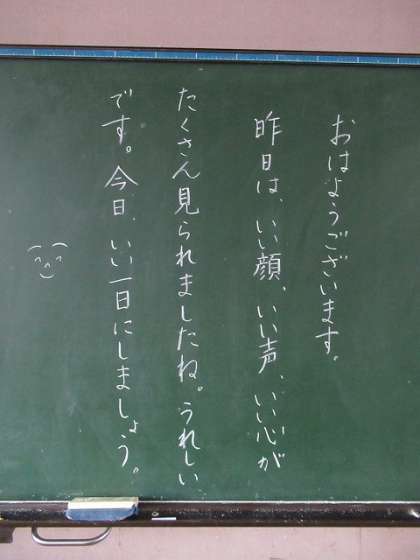 おはようございます。
昨日は、いい顔、いい声、いい心が
たくさん見られましたね。うれしい
です。今日、いい一日にしましょう。